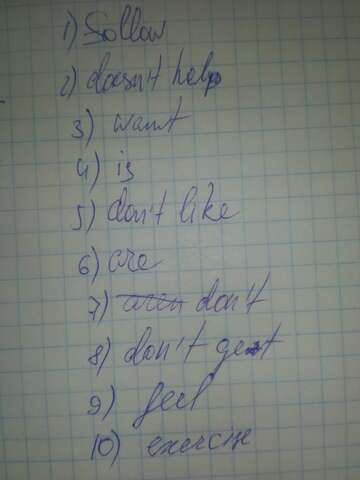 1) Follow
2) doesn't help
3) want
4) is
5) don't like
6) are
7) aren don't
8) don't get
9) feel
10) exercise